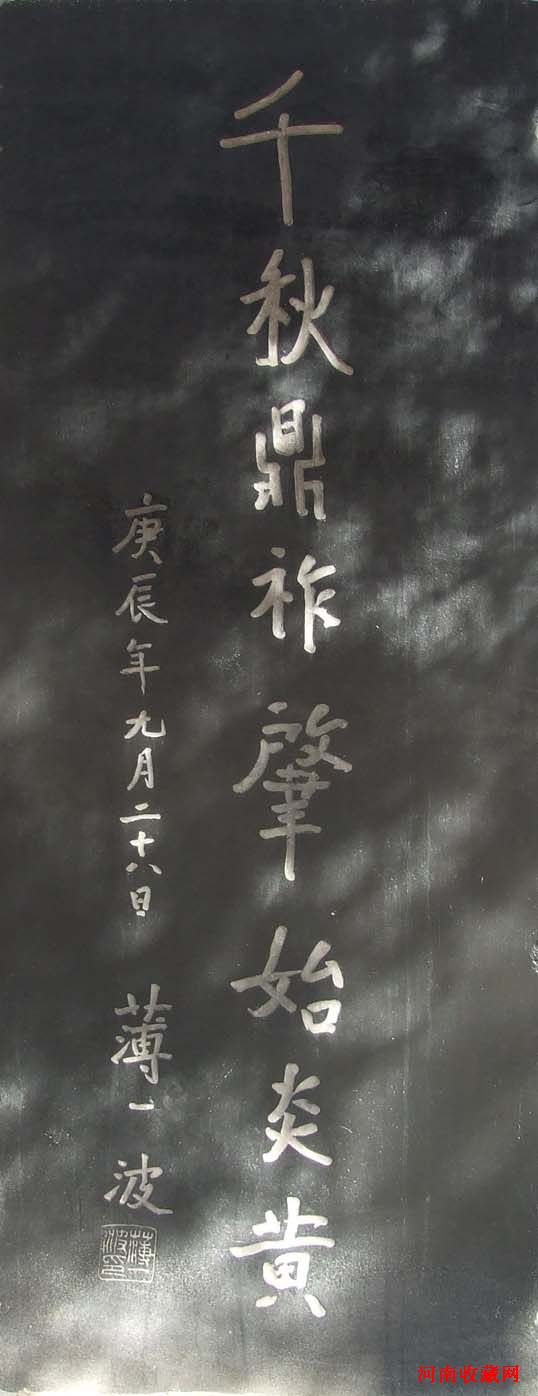 千秋鼎祚肇始炎黄
庚辰年九月二十八日 薄一波
河南收藏网